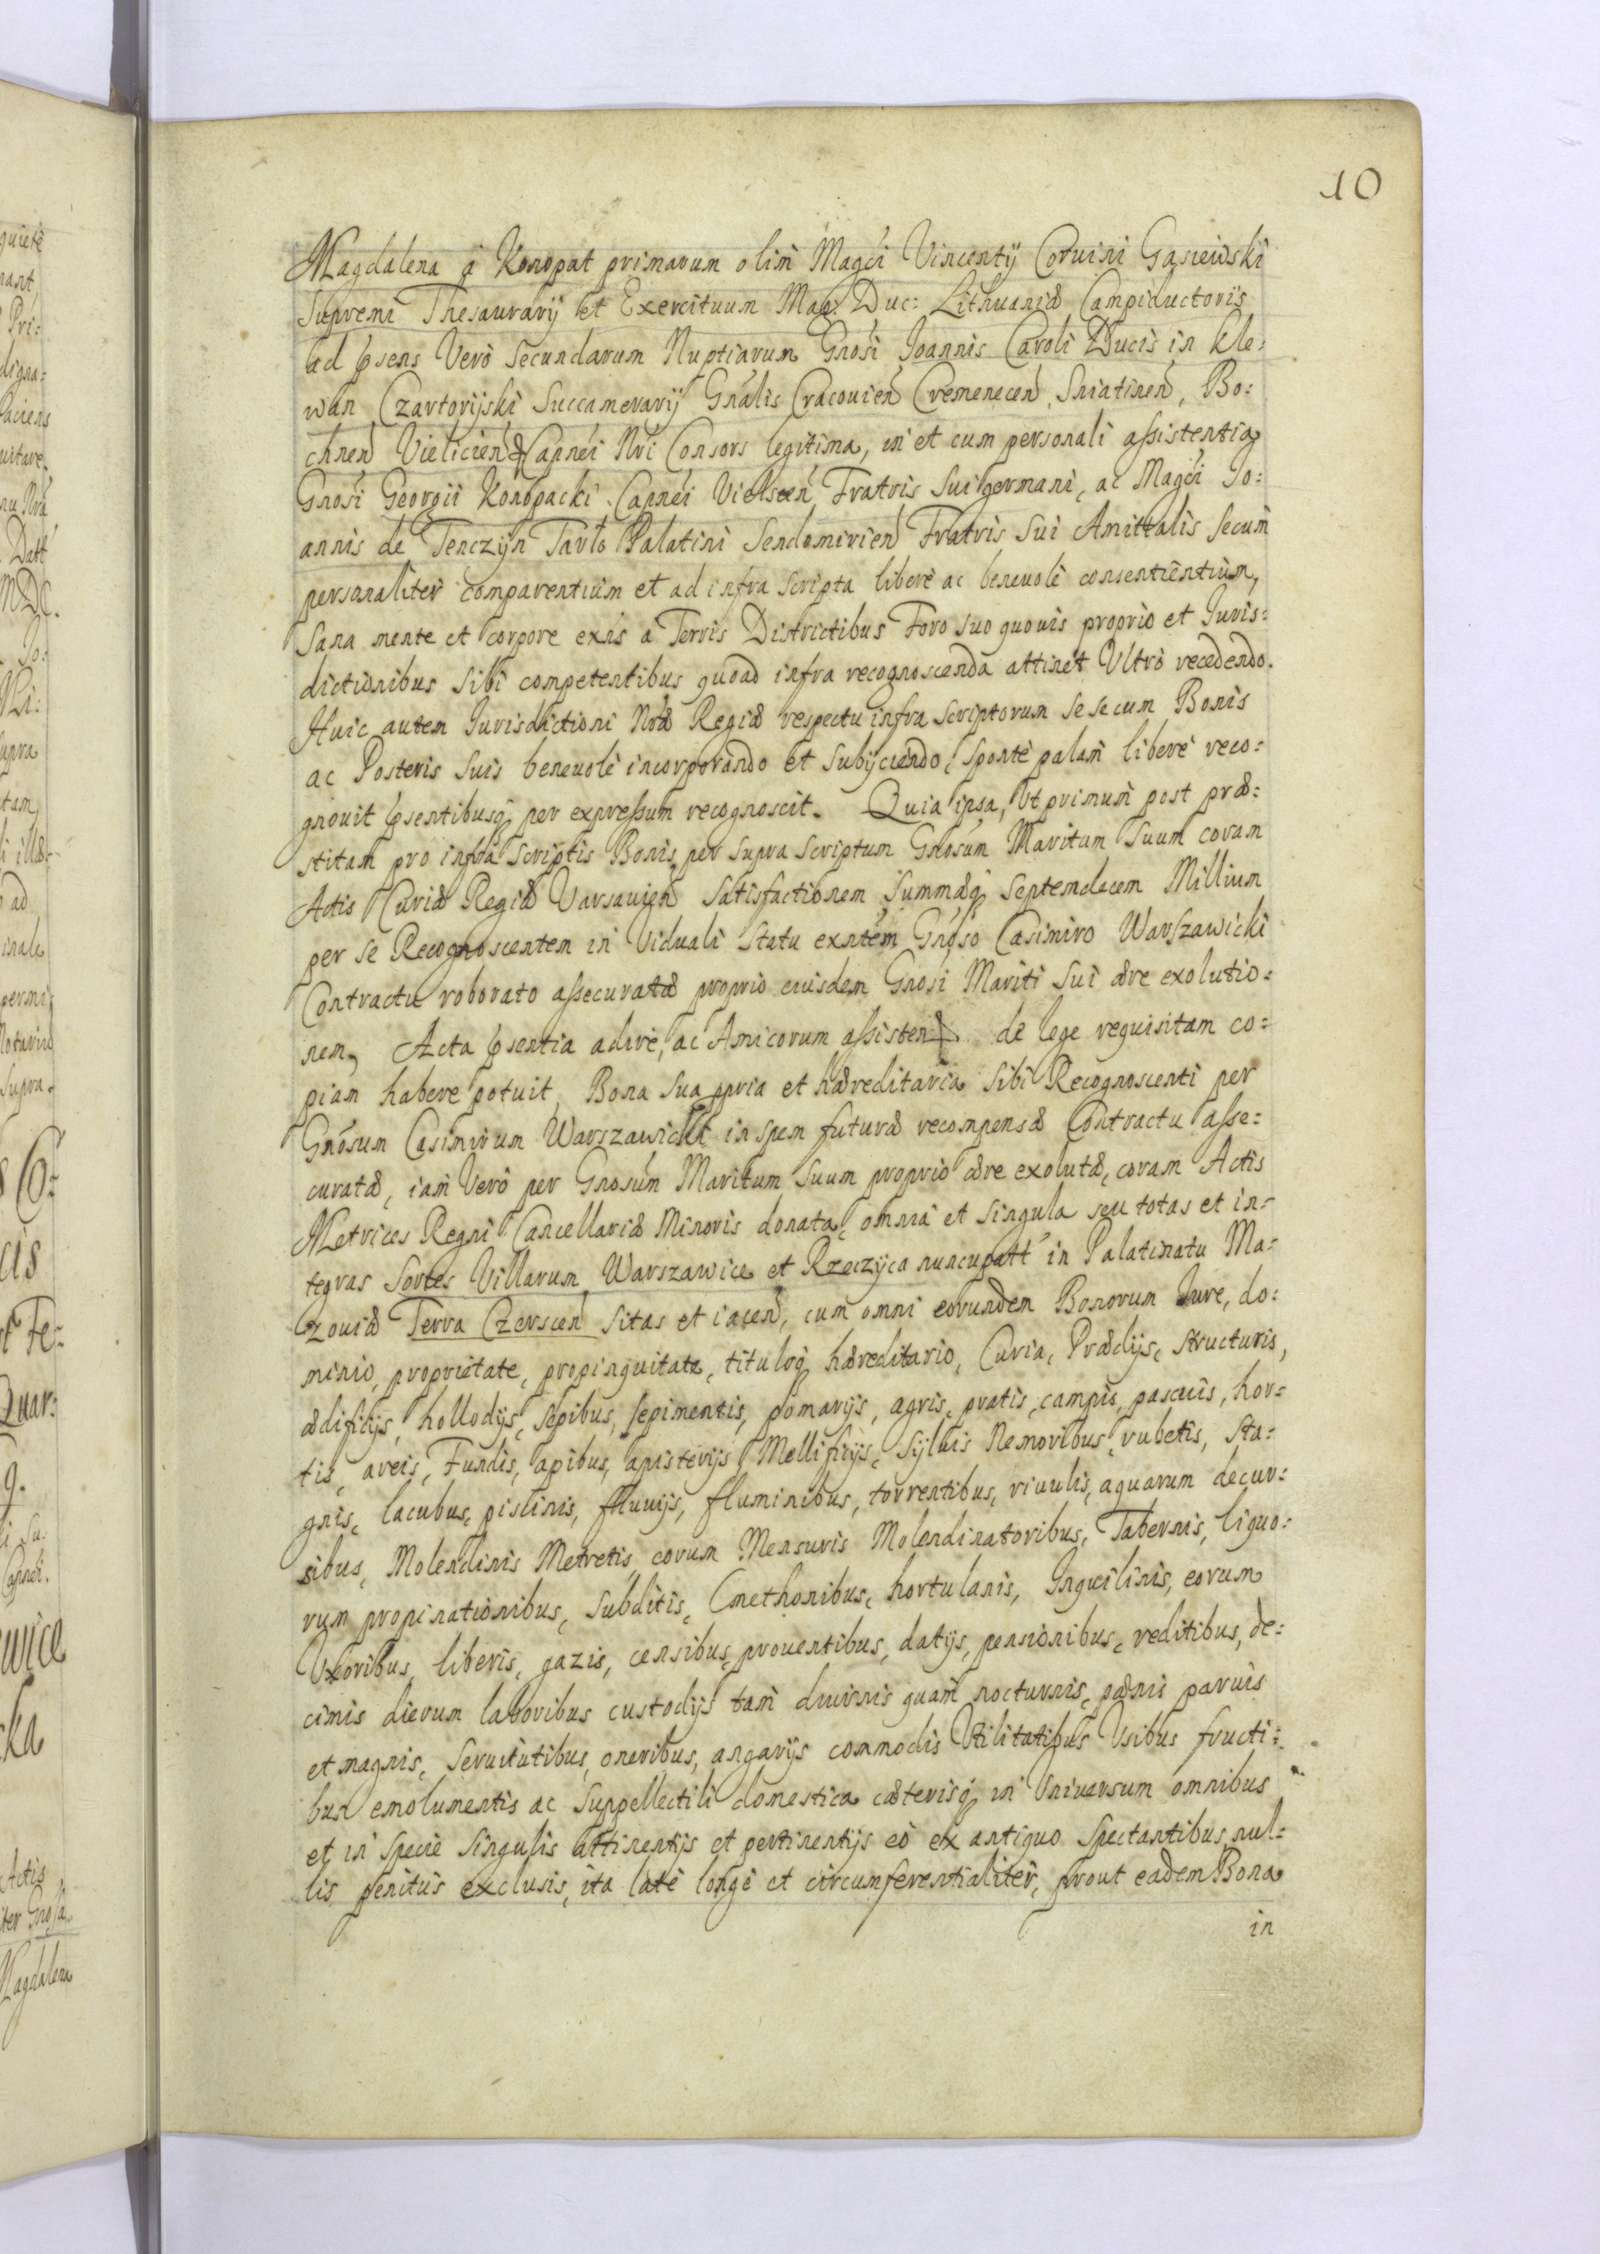 10
Magdalena a Konopat primarum olim Magci Vincentij Coruini Gąsiewski
Supremi Thesaurarij et Exercituum Mag: Duc: Lithuaniæ Campiductoris
ad psens Verò Secundarum Nuptiarum Gnosi Joannis Caroli Ducis in Kle:
wan Czartorijski Succamerarij Gnalis Cracouien Cremenecen, Sniatinen, Bo:
chnen Vielicien & Capnei Nri Consors legitima, in et cum personali assistentia
Gnosi Georgii Konopacki Capnei Vielscen Fratris Sui germani, ac Magci Jo:
annis de Tenczyn Tarło Palatini Sendomirien Fratris Sui Amittalis secum
personaliter comparentium et ad infra scripta liberè ac beneuolè consentientium,
Sana mente et corpore exis a Terris Districtibus Foro suo quouis proprio et Juris:
dictionibus Sibi competentibus quoad infra recognoscenda attinet Vltrò recedendo.
Huic autem Jurisdictioni Nræ Regiæ respectu infra Scriptorum se secum Bonis
ac Posteris Suis beneuolè incorporando et Subijciendo, Spontè palam liberè reco:
gnouit psentibusq per expressum recognoscit. Quia ipsa, Vt primum post præ:
stitam pro infra Scriptis Bonis per supra Scriptum Gnosum Maritum Suum coram
Actis Curiæ Regiæ Varsauien Satisfactionem, Summæq Septemdecem Millium
per se Recognoscentem in Viduali Statu exntem Gnoso Casimiro Warszawicki
Contractu roborato assecuratæ proprio eiusdem Gnosi Mariti Sui ære exolutio:
nem, Acta psentia adire, ac Amicorum assisten de lege requisitam co:
piam habere potuit, Bona Sua ppria et hæreditaria Sibi Recognoscenti per
Gnosum Casimirum Warszawicki in spem futuræ recompensæ Contractu asse:
curatæ, iam Verò per Gnosum Maritum Suum proprio ære exolutæ, coram Actis
Metrices Regni Cancellariæ Minoris donata, omnia et Singula seu totas et in:
tegras Sortes Villarum Warszawice et Rzeczyca nuncupatt in Palatinatu Ma:
zouiæ Terra Czerscen Sitas et iacen, cum omni eorundem Bonorum Jure, do:
minio, proprietate, propinquitate, tituloq hæreditario, Curia, Prædijs, structuris,
ædificijs, hollodijs, Sepibus, sepimentis, pomarijs, agris, pratis, campis, pascuis, hor:
tis, areis, Fundis, apibus, apisterijs Mellificijs, Syluis Nemoribus, rubetis, Sta:
gnis, lacubus, piscinis, fluuijs, fluminibus, torrentibus, riuulis, aquarum decur:
sibus, Molendinis Metretis, eorum Mensuris Molendinatoribus, Tabernis, liquo:
rum propinationibus, Subditis, Cmethonibus, hortulanis, Inquilinis, eorum
Vxoribus, liberis, gazis, censibus, prouentibus, datijs, pensionibus, reditibus, de:
cimis dierum laboribus custodijs tam diurnis quam nocturnis, pœnis paruis
et magnis, Seruitutibus, oneribus, angarijs commodis Vtilitatibus Vsibus fructi:
bus emolumentis ac Suppellectili domestica cæterisq in Vniuersum omnibus
et in specie Singulis attinentijs et pertinentijs eò ex antiquo Spectantibus, nul:
lis penitus exclusis, ita latè longè et circumferentialiter, prout eadem Bona
in